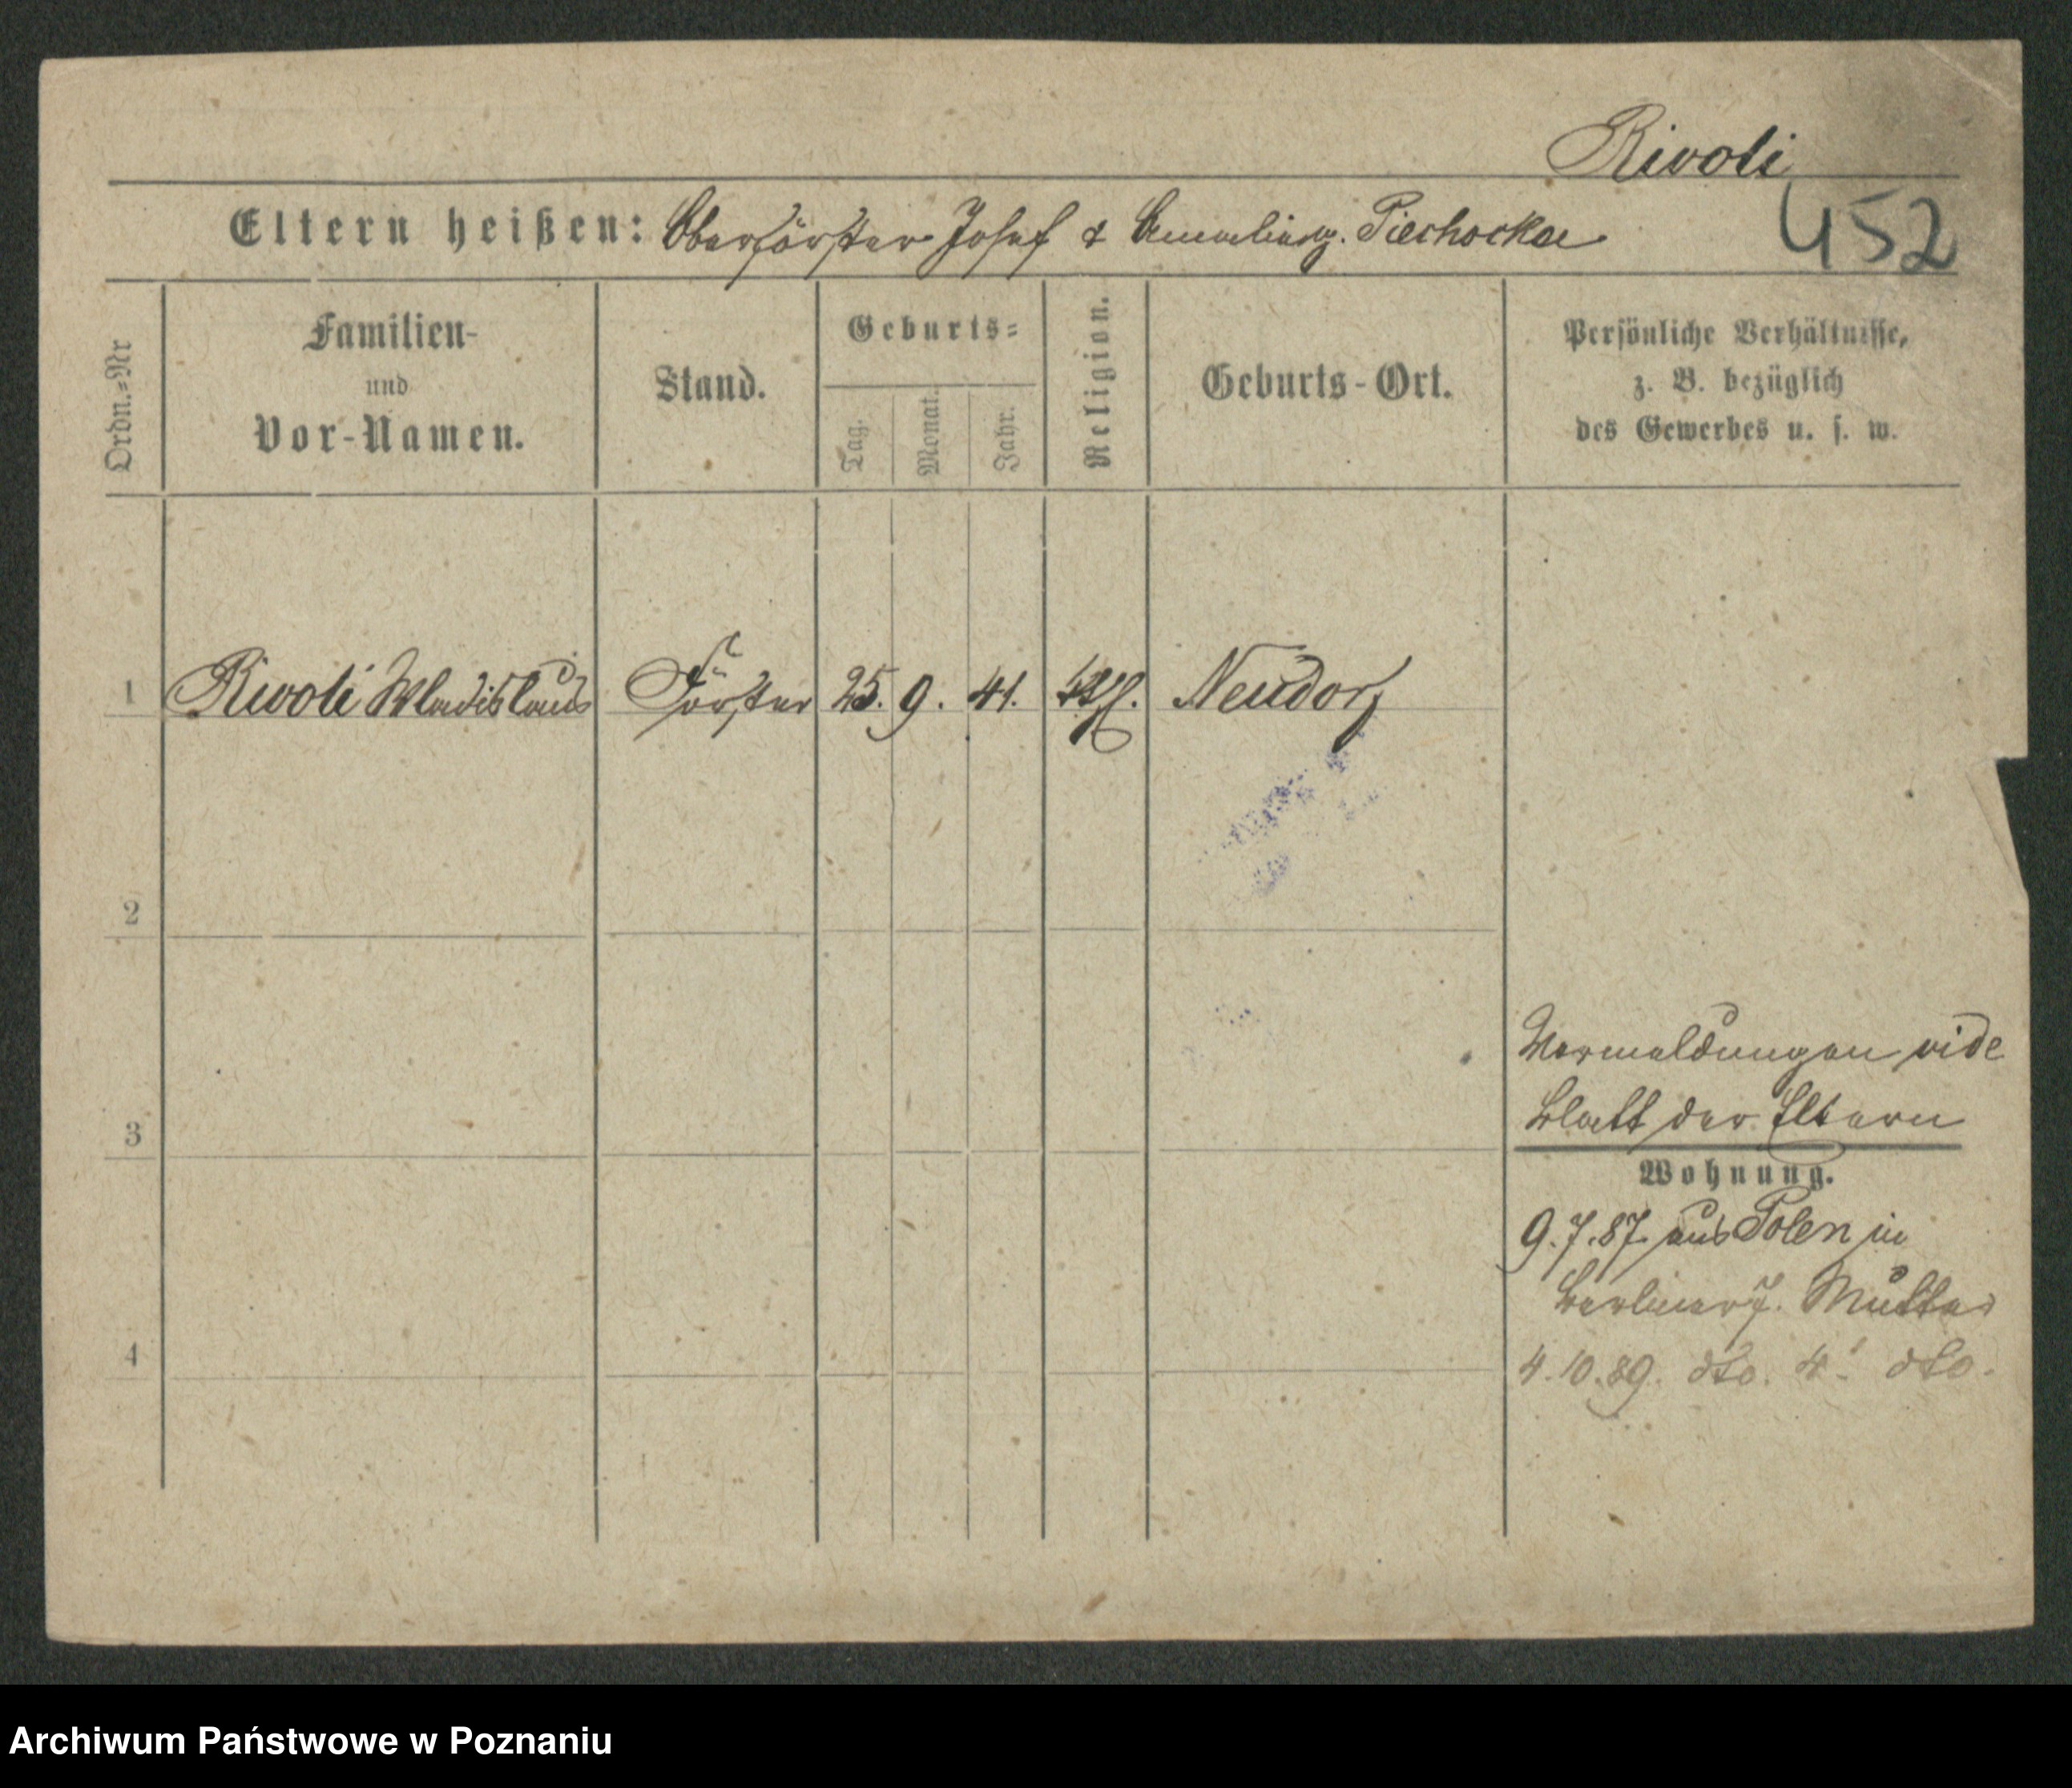 Rivoli
452
Eltern heißen: Oberförster Josef & g. Piechocka
Ordn.=Nr
Familien-
und
Vor-Namen.
Stand.
Geburts=
Tag.
Monat.
Jahr.
Religion.
Geburts-Ort.
Persönliche Verhältnisse,
z. B. bezüglich
des Gewerbes u. s. w.
1 Rivoli Wladislaus Förster 25. 9. 41. Neudorf
2
3
4
Vermeldungen vide
Blatt der Eltern
Wohnung.
9.7.87 aus Polen in
Berliner 7. Mutter
4.10.89. dto. 4. dto.